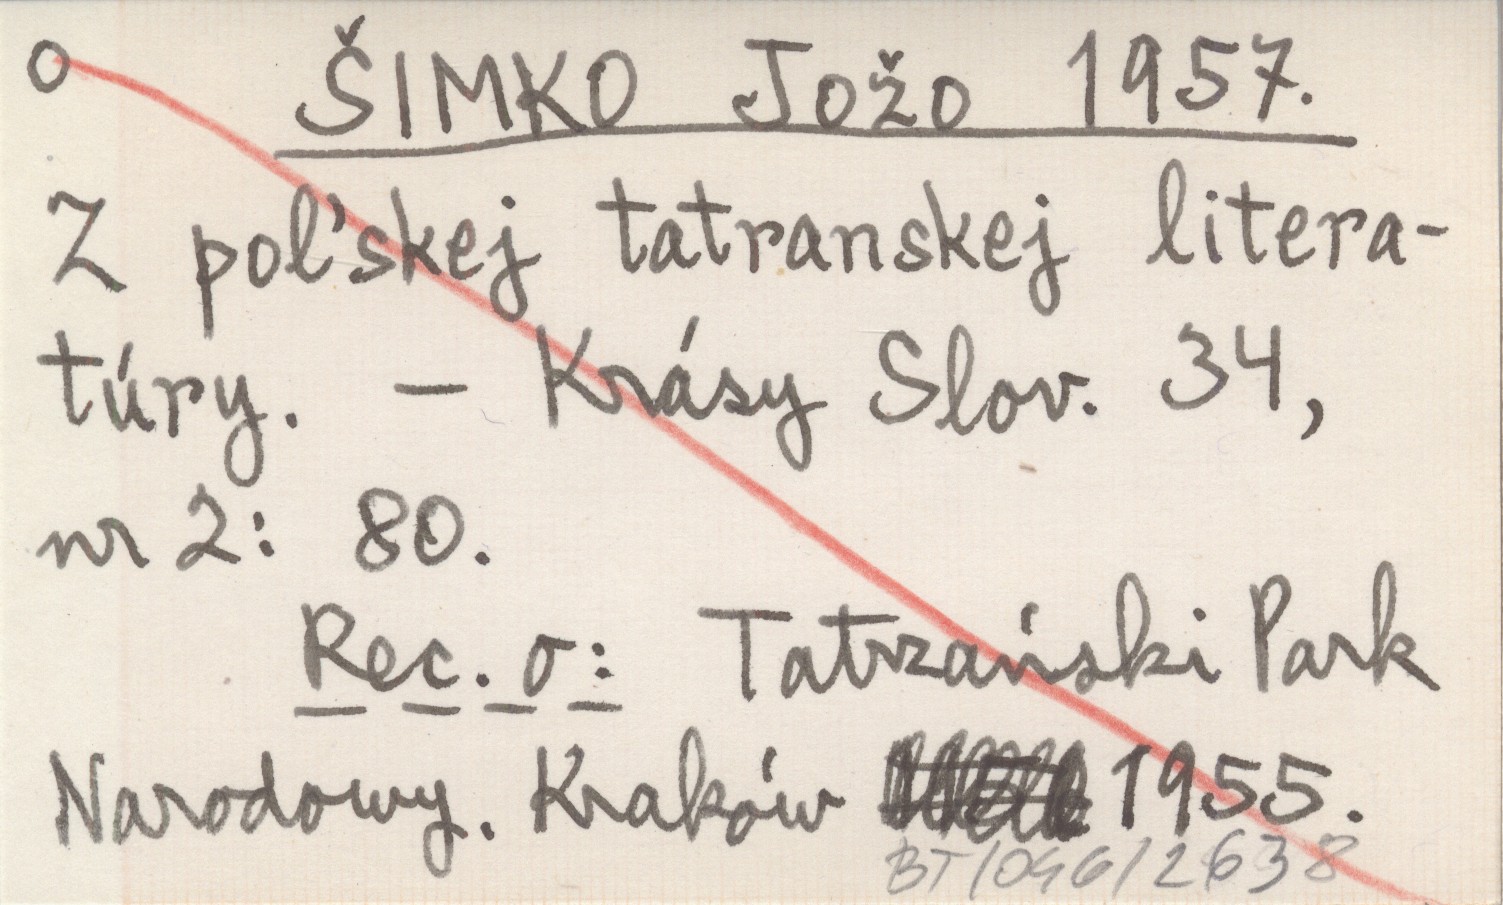 o ŠIMKO Jožo 1957.
Z pol'skej tatranskej litera-
túry. – Krásy Slov. 34,
nr 2: 80.
Rec. o: Tatrzański Park
Narodowy. Kraków 1955.
BT/046/2638